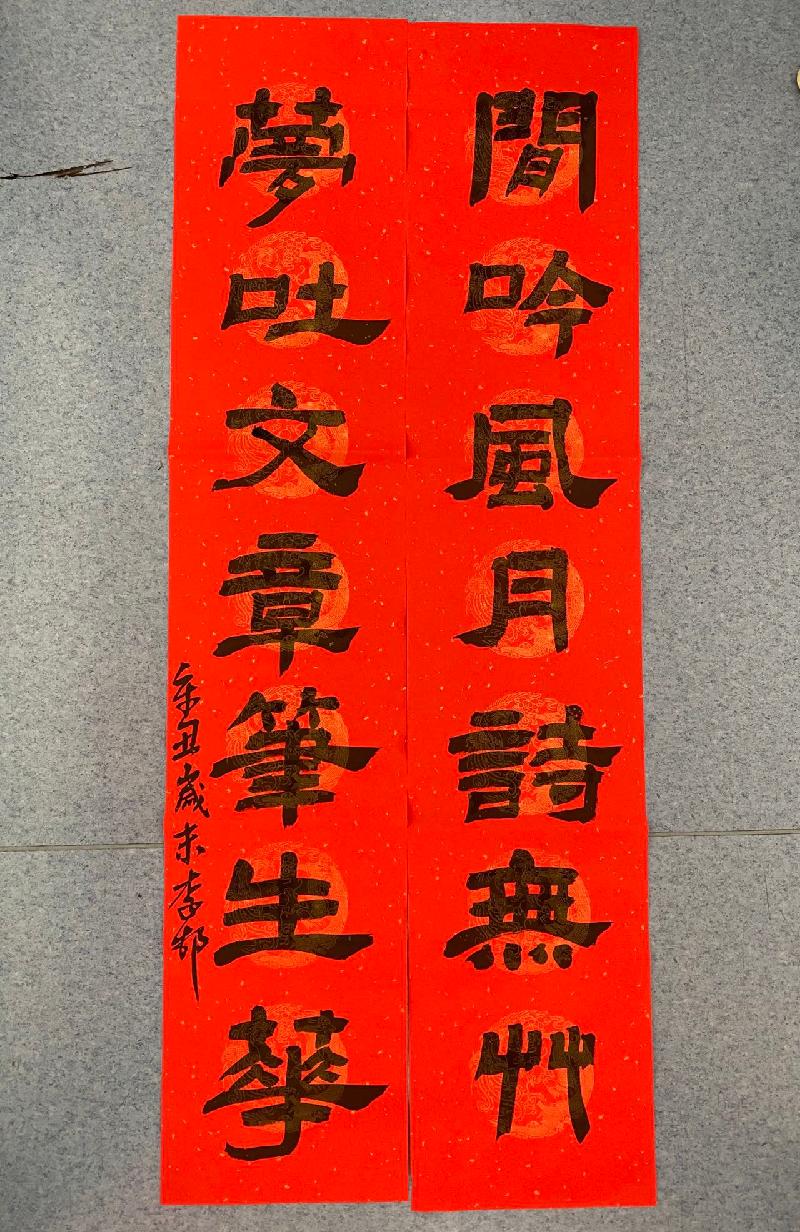 閒吟風月詩無艸
夢吐文章筆生華
辛丑歲末李郁